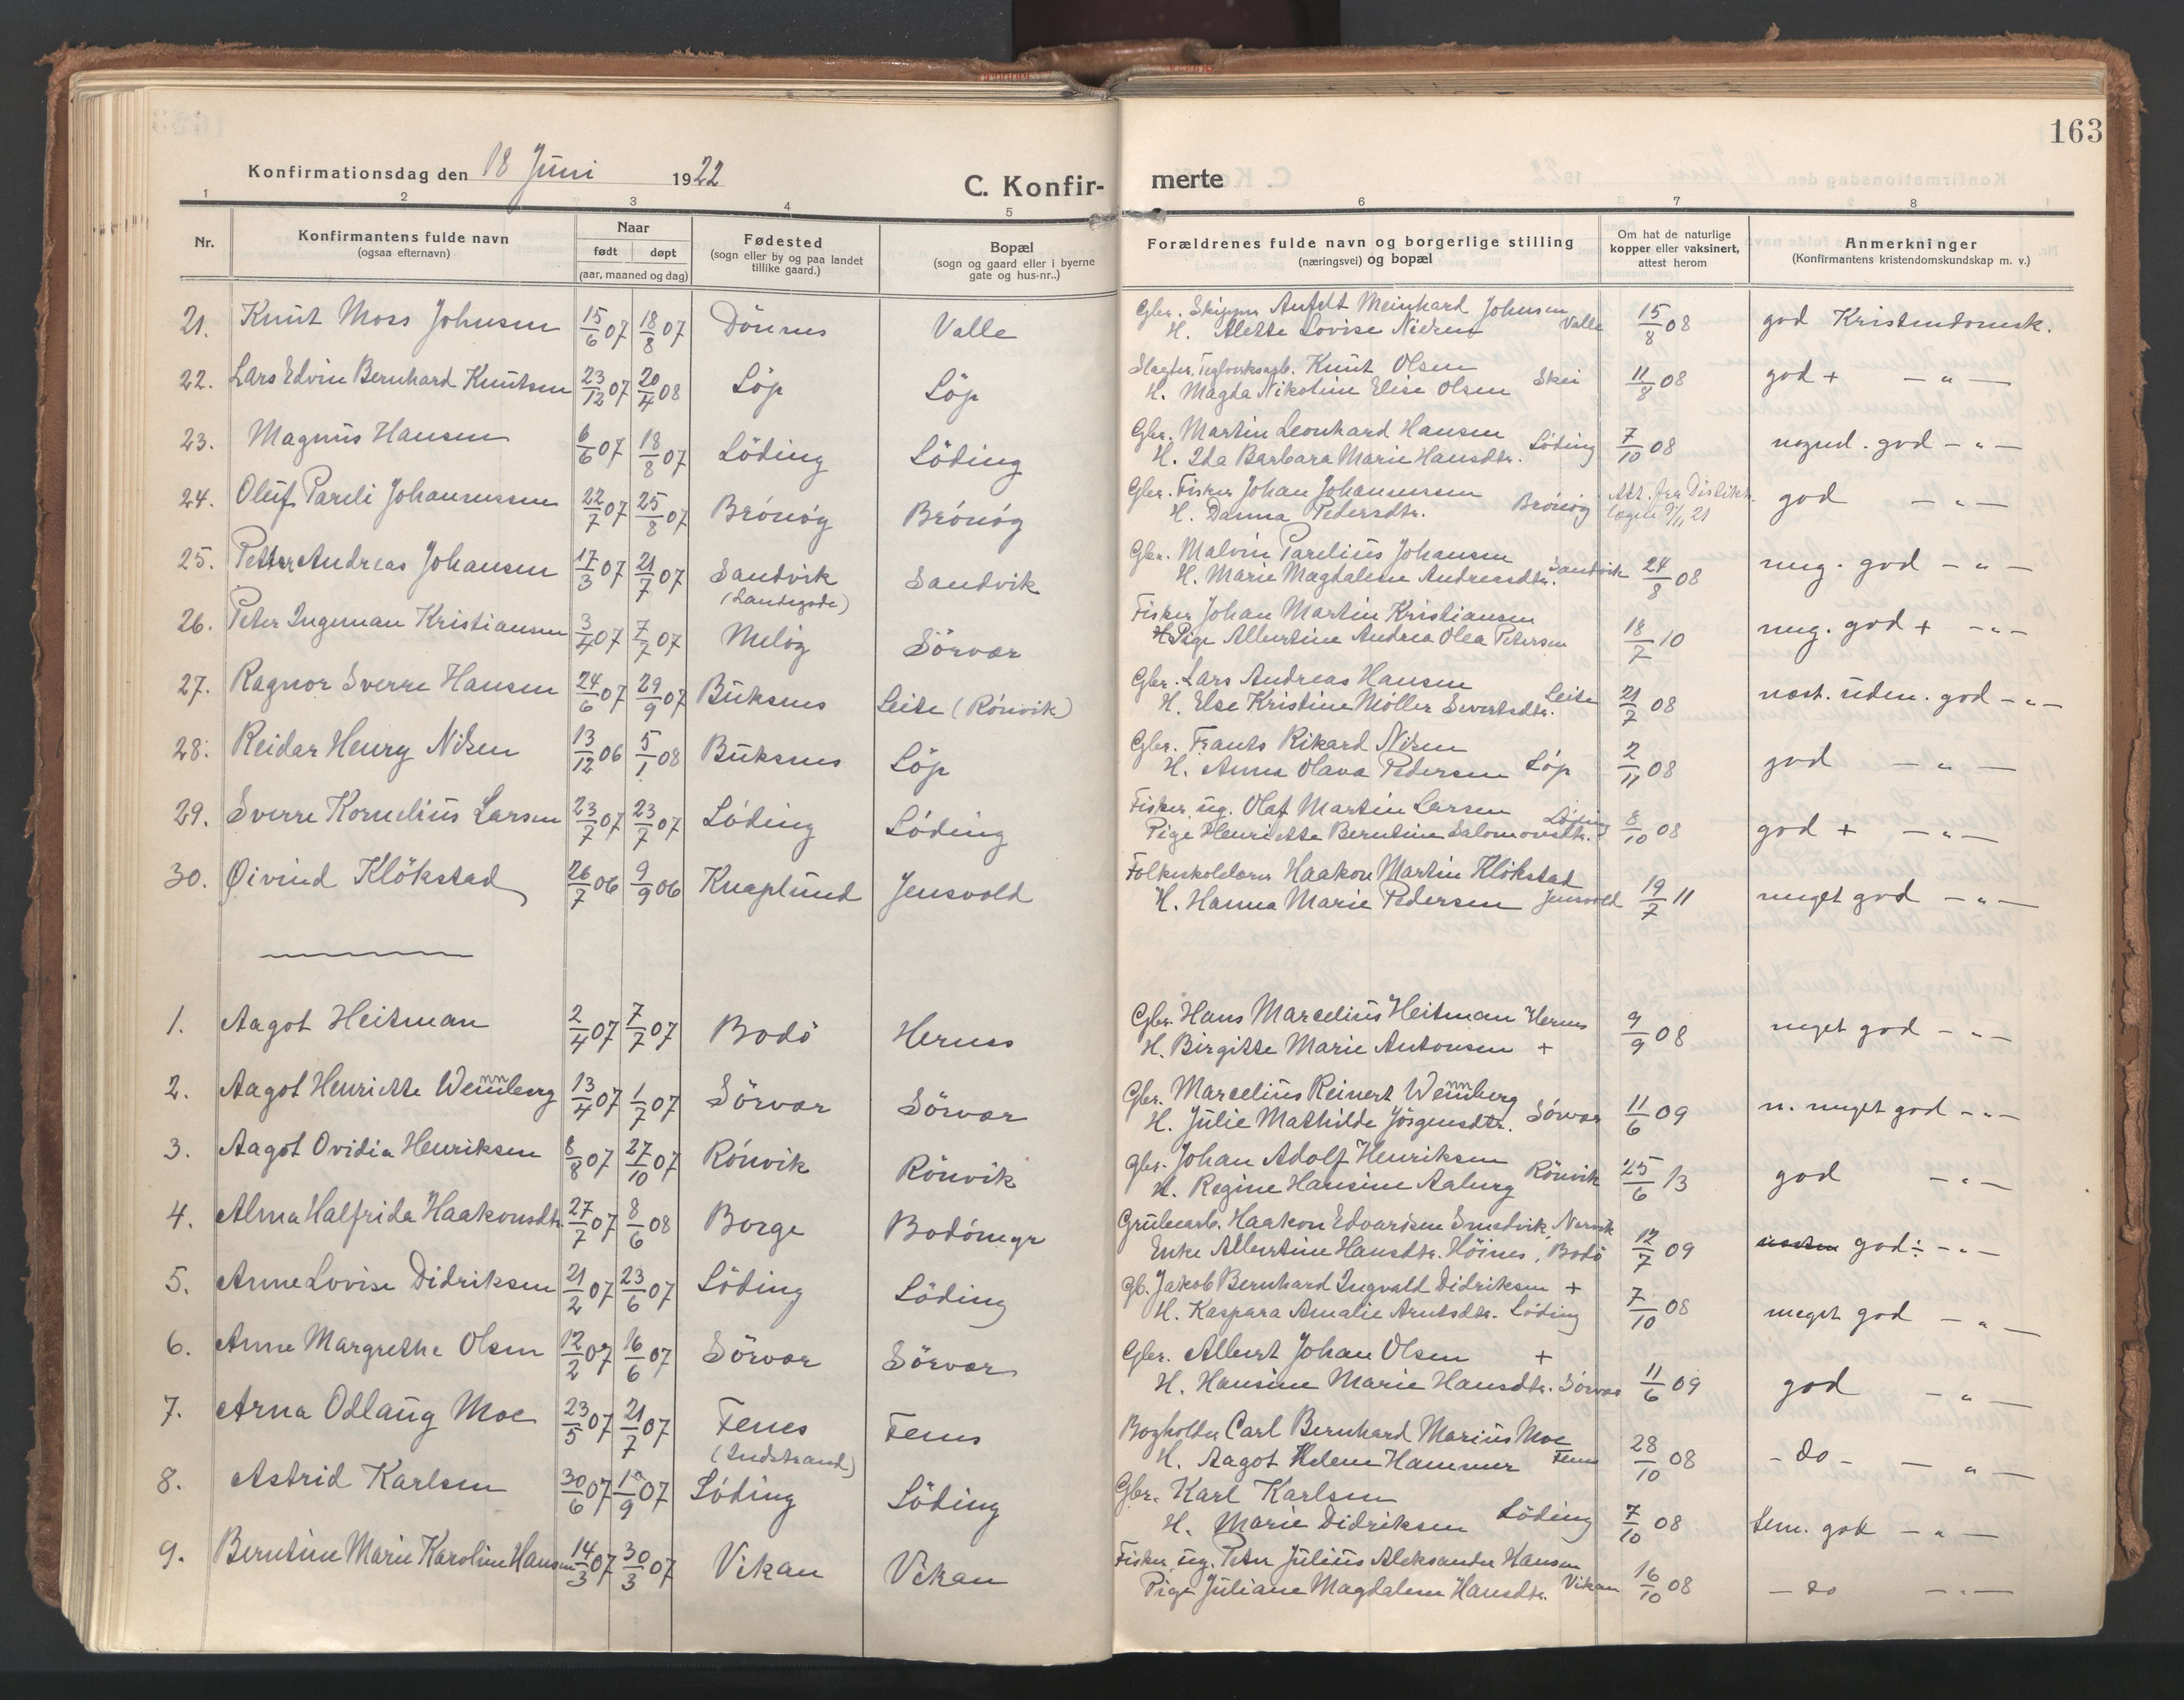 163
Konfirmationsdag den 18 Juni 1922
C. Konfir- merte
1 2 3 4 5 6 7 8
Nr.
Konfirmantens fulde navn
(ogsaa efternavn)
Naar
født døpt
(aar, maaned og dag)
Fødested
(sogn eller by og paa landet
tillike gaard.)
Bopæl
(sogn og gaard eller i byerne
gate og hus-nr..)
Forældrenes fulde navn og borgerlige stilling
(næringsvei) og bopæl
Om hat de naturlige
kopper eller vaksinert,
attest herom
Anmerkninger
(Konfirmantens kristendomskundskap m. v.)
21. Knut Moss Johnsen 15/6 07 18/8 07 Dönnes Valle Gbr. Skipper Meinhard Johnsen
H. Alette Lovise Nilsen Valle 15/8 08 god Kristendomsk.
22. Lars Edvin Bernhard Knutsen 23/12 07 20/4 08 Löp Löp Knut Olsen
H. Magda Nikoline Elise Olsen Skei 11/8 08 god + — " —
23. Magnus Hansen 6/6 07 18/8 07 Löding Löding Gbr. Martin Leonhard Hansen
H. Ida Barbara Marie Hansdtr. Löding 7/10 08 god — " —
24. Oluf Pareli Johannessen 22/7 07 25/8 07 Brönög Brönög Gbr. Fisker Johan Johannessen
H. Danna Pedersdtr. Brönög Att. fra Distikts
lægen 9/11 21 god — " —
25. Petter Andreas Johansen 17/3 07 21/7 07 Sandvik
(Landegode) Sandvik Gbr. Malvin Parelius Johansen
H. Marie Magdalene Andreasdtr. Sandvik 24/8 08 meg. god — " —
26. Peter Ingeman Kristiansen 3/4 07 7/7 07 Melög Sörvær Fisker Johan Martin Kristiansen
Pige Albertine Andrea Olea Petersen 18/7 10 meg. god + — " —
27. Ragnor Sverre Hansen 24/6 07 29/9 07 Buksnes Leite (Rönvik) Gbr. Lars Andreas Hansen
H. Else Kristine Möller Sivertsdtr. Leite 21/7 08 næst. uden. god — " —
28. Reidar Henry Nilsen 13/12 06 5/1 08 Buksnes Löp Gbr. Frants Rikard Nilsen
H. Anna Olava Pedersen Löp 2/11 08 god — " —
29. Sverre Kornelius Larsen 23/7 07 23/7 07 Löding Löding Fisker, ug. Olaf Martin Larsen
Pige Henriette Berntine Salomonsdtr. Löding 8/10 08 god + — " —
30. Øivind Klökstad 26/7 06 9/9 06 Knaplund Jensvold Folkeskolelærer Haakon Martin Klökstad
H. Hanna Marie Pedersen Jensvold 19/7 11 meget god — " —
1. Aagot Heitman 2/4 07 7/7 07 Bodö Hernes Gbr. Hans Marcelius Heitman Hernes
H. Birgitte Marie Antonsen + 9/9 08 meget god — " —
2. Aagot Henriette Wennberg 13/4 07 1/7 07 Sörvær Sörvær Gbr. Marcelius Reinert Wennberg
H. Julie Mathilde Jörgensdtr. Sörvær 11/6 09 n. meget god — " —
3. Aagot Ovidia Henriksen 8/8 07 27/10 07 Rönvik Rönvik Gbr. Johan Adolf Henriksen
H. Regine Hansine Aaberg Rönvik 25/6 13 god — " —
4. Alma Halfrida Haakonsdtr. 27/7 07 8/6 08 Borge Bodömgr Grubearb. Haakon Edvardsen Smedvik, Narvik
Enke Albertine Hansdtr. Höines, Bodö 12/7 09 god ÷ — " —
5. Anne Lovise Didriksen 21/2 07 23/6 07 Löding Löding Gb. Jakob Bernhard Ingvald Didriksen +
H. Kaspara Amalie Arntsdtr. Löding 7/10 08 meget god — " —
6. Anne Margrethe Olsen 12/2 07 16/6 07 Sörvær Sörvær Gbr. Albert Johan Olsen +
H. Hansine Marie Hansdtr. Sörvær 11/6 09 god — " —
7. Arna Odlaug Moe 23/5 07 21/7 07 Fenes
(Indstrand) Fenes Bogholder Carl Bernhard Marius Moe
H. Aagot Helene Hammer Fenes 28/10 08 - do - — " —
8. Astrid Karlsen 30/6 07 1/9 07 Löding Löding Gbr. Karl Karlsen
H. Marie Didriksen Löding 7/10 08 tem. god — " —
9. Berntine Marie Karoline Hansen 14/3 07 30/3 07 Vikan Vikan Fisker, ug. Peter Julius Aleksander Hansen
Pige Juliane Magdalene Hansdtr. Vikan 16/10 08 — do — " —